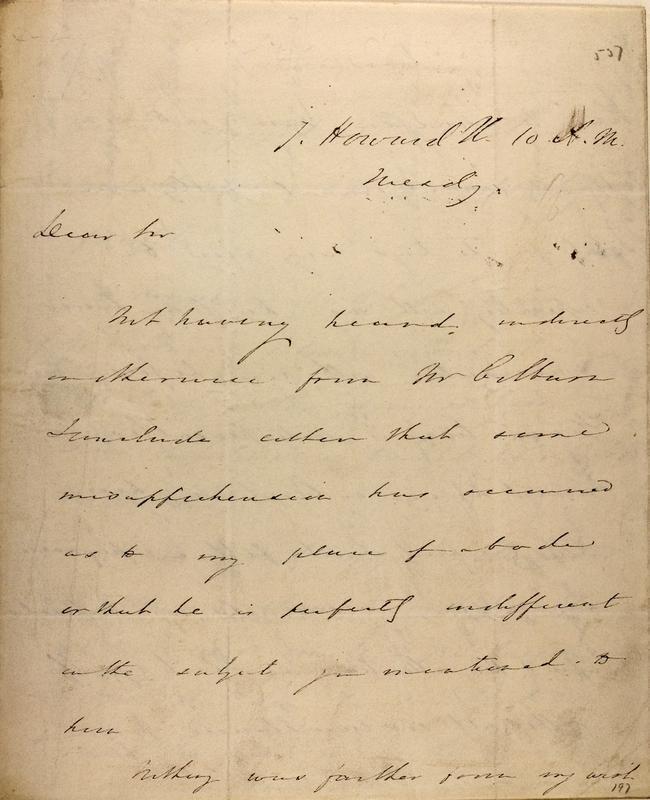 557
7. Howard St. 10 A.M.
Wesdy.
Dear Sir
Not having heard, indirectly
or otherwise from Mr Colburn
I conclude either that some
misapprehension has occurred
as to my place of abode
or that he is perfectly indifferent
on the subject you mentioned to
him
Nothing was further from my wish
197